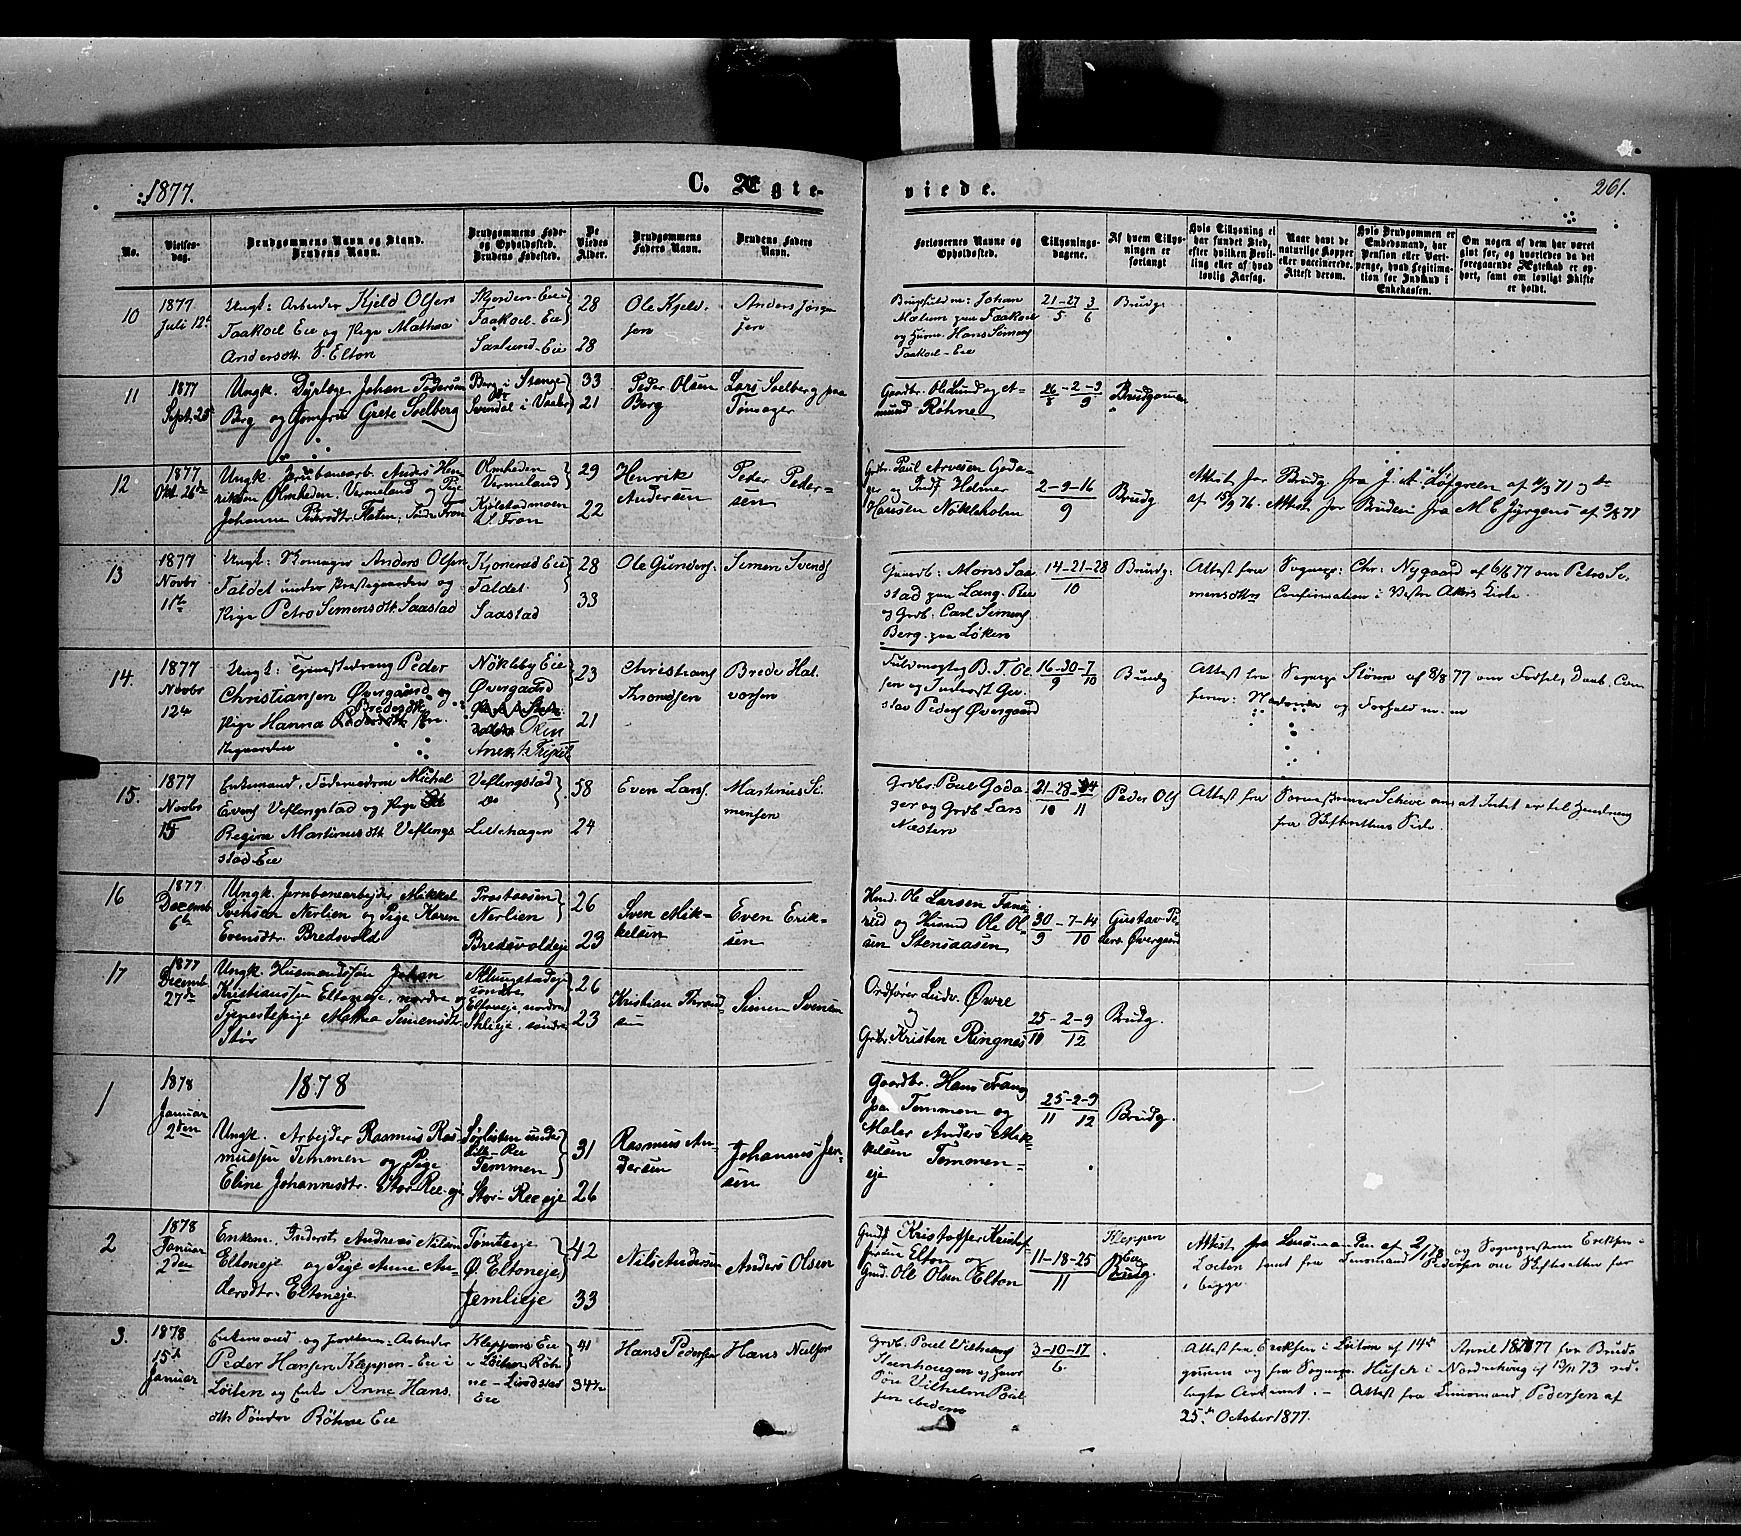 1877.
C. Ægte-
viede.
261.
No.
Vielses-
dag.
Brudgommens Navn og Stand.
Brudens Navn.
Brudgommens Føde-
og Opholdssted.
Brudens Fødested.
De
Viedes
Alder.
Brudgommens
Faders Navn.
Brudens Faders
Navn.
Forlovernes Navne og
Opholdssted.
Tillysnings-
dagene.
Af hvem Tillys-
ningen er
forlangt
Hvis Tillysning ei
har fundet Sted,
efter hvilken Bevil-
ling eller af hvad
lovlig Aarsag.
Naar havt de
naturlige Kopper
eller vaccinerede.
Attest derom.
Hvis Brudgommen er
Embedsmand, har
Pension eller Vart-
penge, hvad Legitima-
tion for Indskud i
Enkekassen.
Om nogen af dem har været
gift før, og hvorledes da det
foregaaende Ægteskab er op-
hørt, samt om lovligt Skifte
er holdt.
10
1877
Juli 12te
Ungk: Arbeider Kjeld Olsen
Taakoel Eie og Pige Mathea
Andersdtr S. Elton
Taakoel-Eie
Saslund-Eie
28
28
Ole Kjeld-
sen
Anders Jørgen-
sen
Johan
Mælum paa Taakoel
og Hans Simens
Taakoel-Eie
21-27 3
5 6
Brudg:
11
1877
Sept. 25de
Ungk. Dyrlæge Johan Pedersen
Berg og Jomfru Grete Solberg
Berg i Stange
Svendal i Vaaler
33
21
Peder Olsen
Berg
Lars Solberg paa
Tønsager
Gaardbr. Ole Lund og A-
mund Røhne
26-2-9
8 9
Brudgommen
12
1877
Okt. 26de
Ungk. Jernbanearb. Anders Hen-
riksen Olmheden, Vermeland og Pige
Johanne Pedersdtr. Moten, Søndre Fron
Olmheden
Vermeland
Kjølstadmoen
S. Fron
29
22
Henrik
Andersen
Peder Peder-
sen
Grdbr. Paul Arvesen Goda-
ger og Indst Helmer
Hansen Nökleholm
2-9-16
9
Brudg
Attest for Brudg. fra J. A. Löfgreen af 11/9 71 og do
af 15/9 76. Attest for Bruden fra M. C. Jyrgens af 9/8 77
13
1877
Novbr
11te
Ungk: Skomager Anders Olsen
Taldet under Præstegaarden og
Pige Petra Simensdtr. Saastad
Kjonerud Eie
Taldet
Saastad
28
33
Ole Gunders.
Simen Svends
Gaardb: Mons Saa-
stad paa Lang-Ree
og Grdb: Carl Simens
Berg paa Løken
14-21-28
10
Brudg:
Attest fra Sognepr: Chr: Nygaard af 6/6 77 om Petra Si-
mensdtrs Confirmation i Vestre Akers Kirke.
14.
1877
Novbr
12te
Ungk: Tjenestedreng Peder
Christiansen Øvergaard og
Bredesdtr
Pige Hanna Pedersdtr Præ-
stegaarden
Nökleby Eie
Øvergaard
23
21
Christians
Thronsen
Brede Hal-
vorsen
Fuldmægtig B. T. Ol-
sen og Inderst Gu-
stav Peders Øvergaard
16-30-7
9 10
Brudg
Attest fra Sognepr Støren af 8/8 77 om Fødsel, Daab, Con-
firm: Nadverden og Forhold m. m
15.
1877
Novbr
15
Enkemand, Føderaadsm Michel
Evens Veflingstad og Pige
Regine Martinusdtr Veflings-
stad-Eie
Veflingstad
Do
Lillehagen
58
24
Even Lars.
Martinus Si-
mensen
Grdbr: Paul Goda-
ger og Grdb Lars
Næsten
21-28-4
10 11
Peder Ols
Attest fra Sorenskriver Scheve om at Intet er til Hindring
fra Skifterettens Side.
16
1877
Decemb
6te
Ungk. Jernbanearbejder Mikkel
Svensen Nerlien og Pige Karen
Evensdtr. Bredsvold
Prestaasen
Nerlien
Bredsvoldeje
26
23
Sven Mik-
kelsen
Even Erik-
sen
Husmd. Ole Larsen Fane-
rud og Husmd Ole Ol-
sen Stensaasen
30-7-14
9 10
Gustav Pe-
ders. Øvergaard
17
1877
Decemb.
27de
Ungk. Husmandssøn Johan
Kristiansen Eltoneje, nordre og
Tjenestepige Mathea Simensdtr.
Stør
Eltoneje, nordre
26
23
Kristian Thrond-
sen
Simen Svensen
Ordfører Ludv. Øvre
og
Grdbr Kristen Ringnæs
25-2-9
11 12
Brudg.
1878
1
1878
Januar
2den
Ungk. Arbejder Rasmus Ras-
mussen Temmen og Pige
Eline Johannesdtr. Stor-Ree-eje
Sørlisten under
Lille-Ree
Temmen
Stor-Ree eje
31
26
Rasmus An-
dersen
Johannes Jen-
sen
Gaardbr. Hans Frang
paa Temmen og
Maler Anders Mik-
kelsen Temmen-
eje
25-2-9
11 12
Brudg.
2
1878
Januar
2den
Enkem. Inderst, Andreas Nilsen
Eltoneje og Pige Anne An-
dersdtr. Eltoneje
Tømteeje
Ø. Eltoneje
Jemlieje
42
33
Nils Andersen
Anders Olsen
Kristoffer Kristof-
fersen Elton og
Grud. Ole Olsen Elton
11-18-25
11
Kleppen
Eie
Brudg.
Attest fra Lensmanden af 2/1 78 og Sognepræsten Eriksen i
Løiten samt fra Lensmand Pedersen om Skifteretten for
begge.
3.
1878
15de
Januar
Enkemand og Jernban-Arbeider
Peder Hansen Kleppen-Eie i
Löiten og Enke Anne Hans-
dtr Søndre Röhne Eie
Kleppens Eie
i Löiten Röh-
ne-Lundstad
Eie
41
34½
Hans Pedersen
Hans Nielsen
Grdb. Poul Vilhelms
Steenhaugen og hans
Søn Vilhelm Poul-
sen ibidem
3-10-17
6
Attest fra Eriksen i Löiten af 14de April 1877 for Brud-
gommen og fra Sognepr. Husek i Nordenborg af 13/11 73 ved-
lagte Ardinat. - Attest fra Lensmand Pedersen af
25de October 1877.